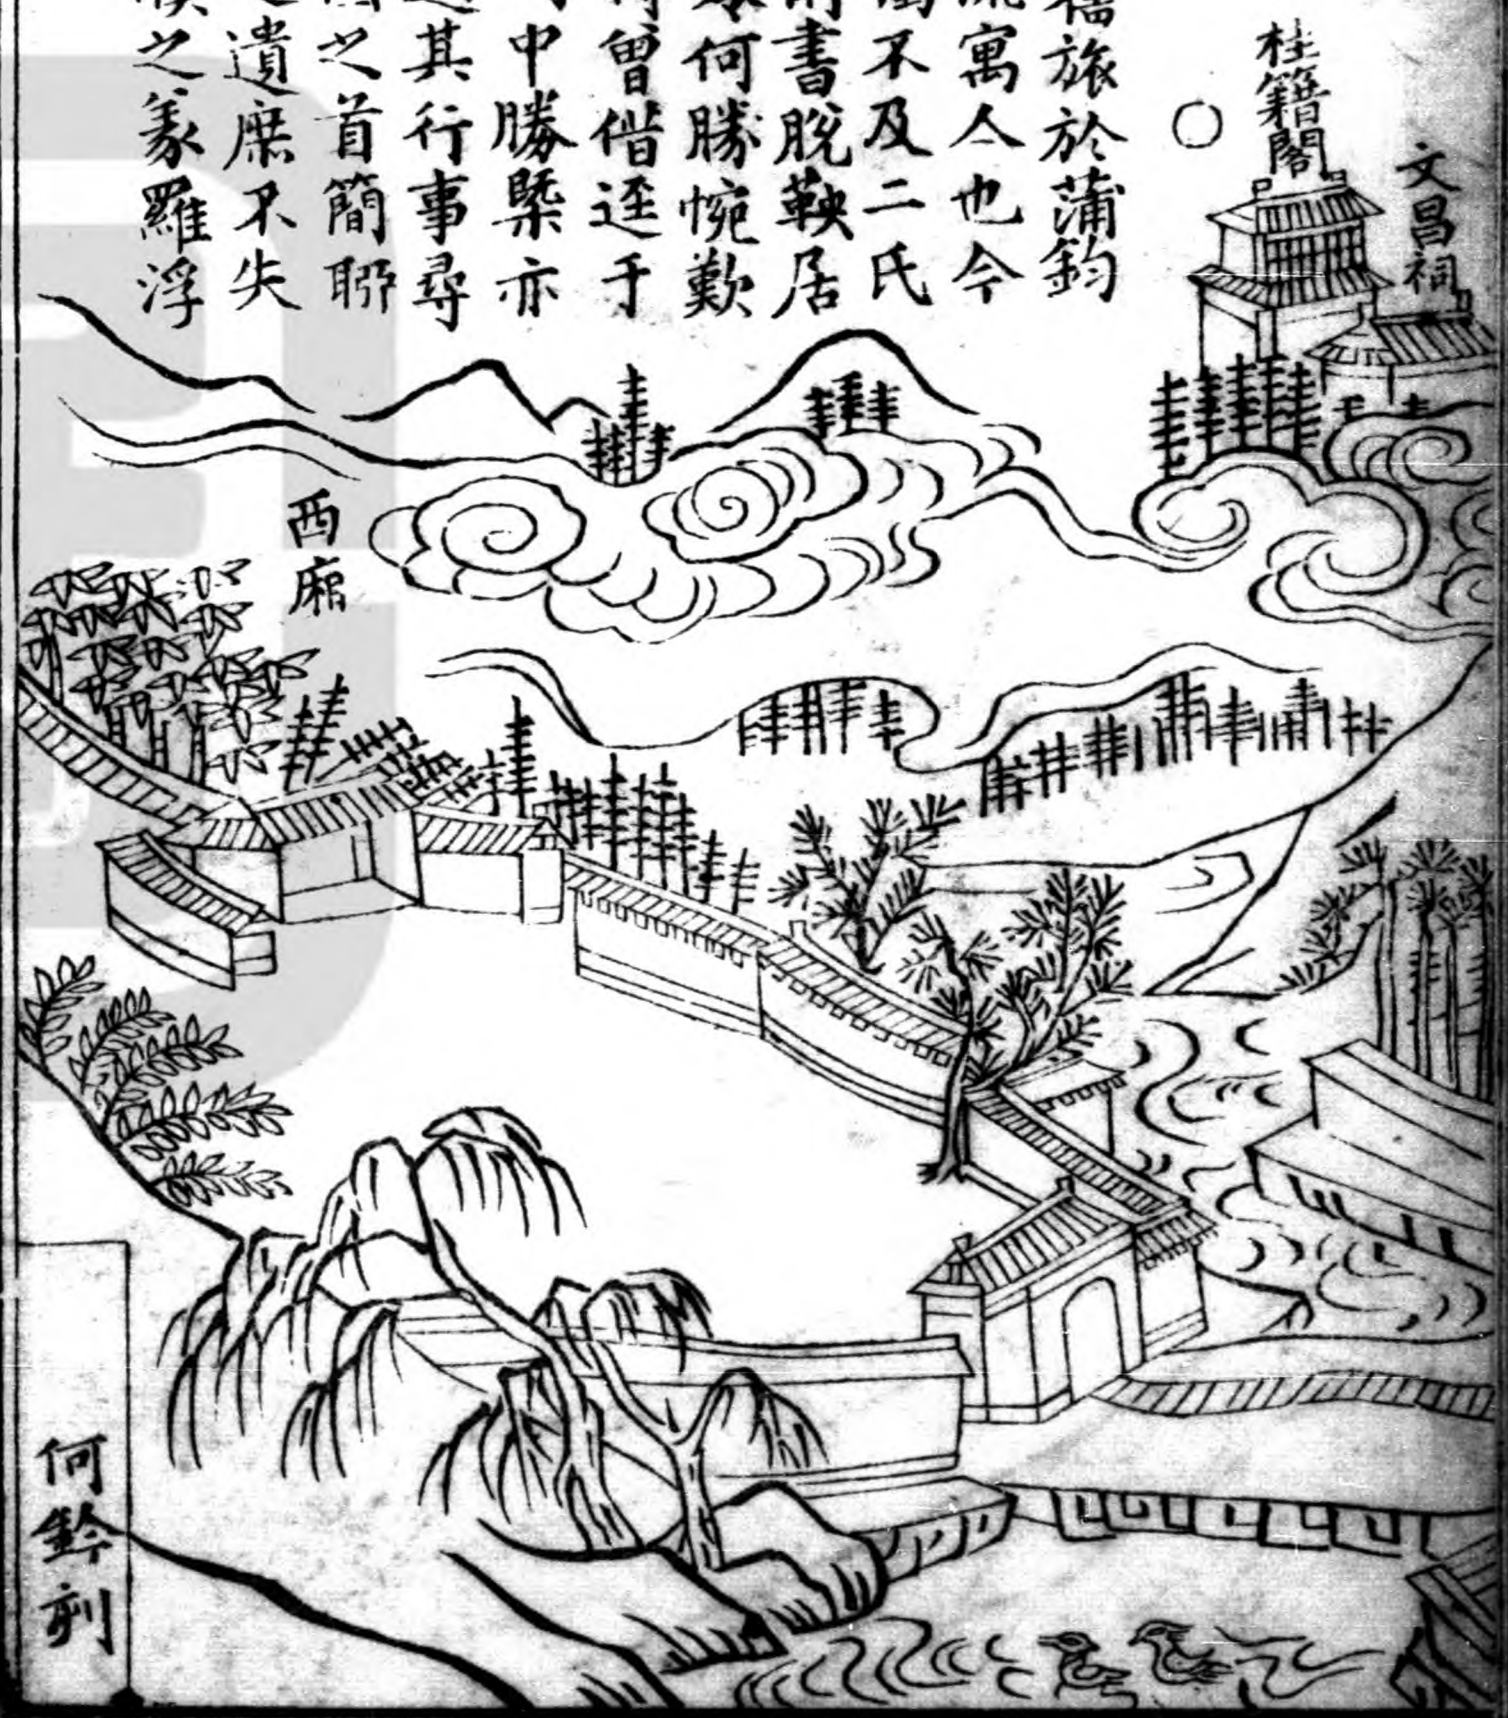 文昌祠
桂籍閣
旅於蒲鈞
寓仐也今
不及二氏
書脫鞅居
何勝惋歎
曾偕逕于
中勝槩亦
其行事尋
之首簡聊
遺庶不失
之羕羅浮
西廂
何鈐刻